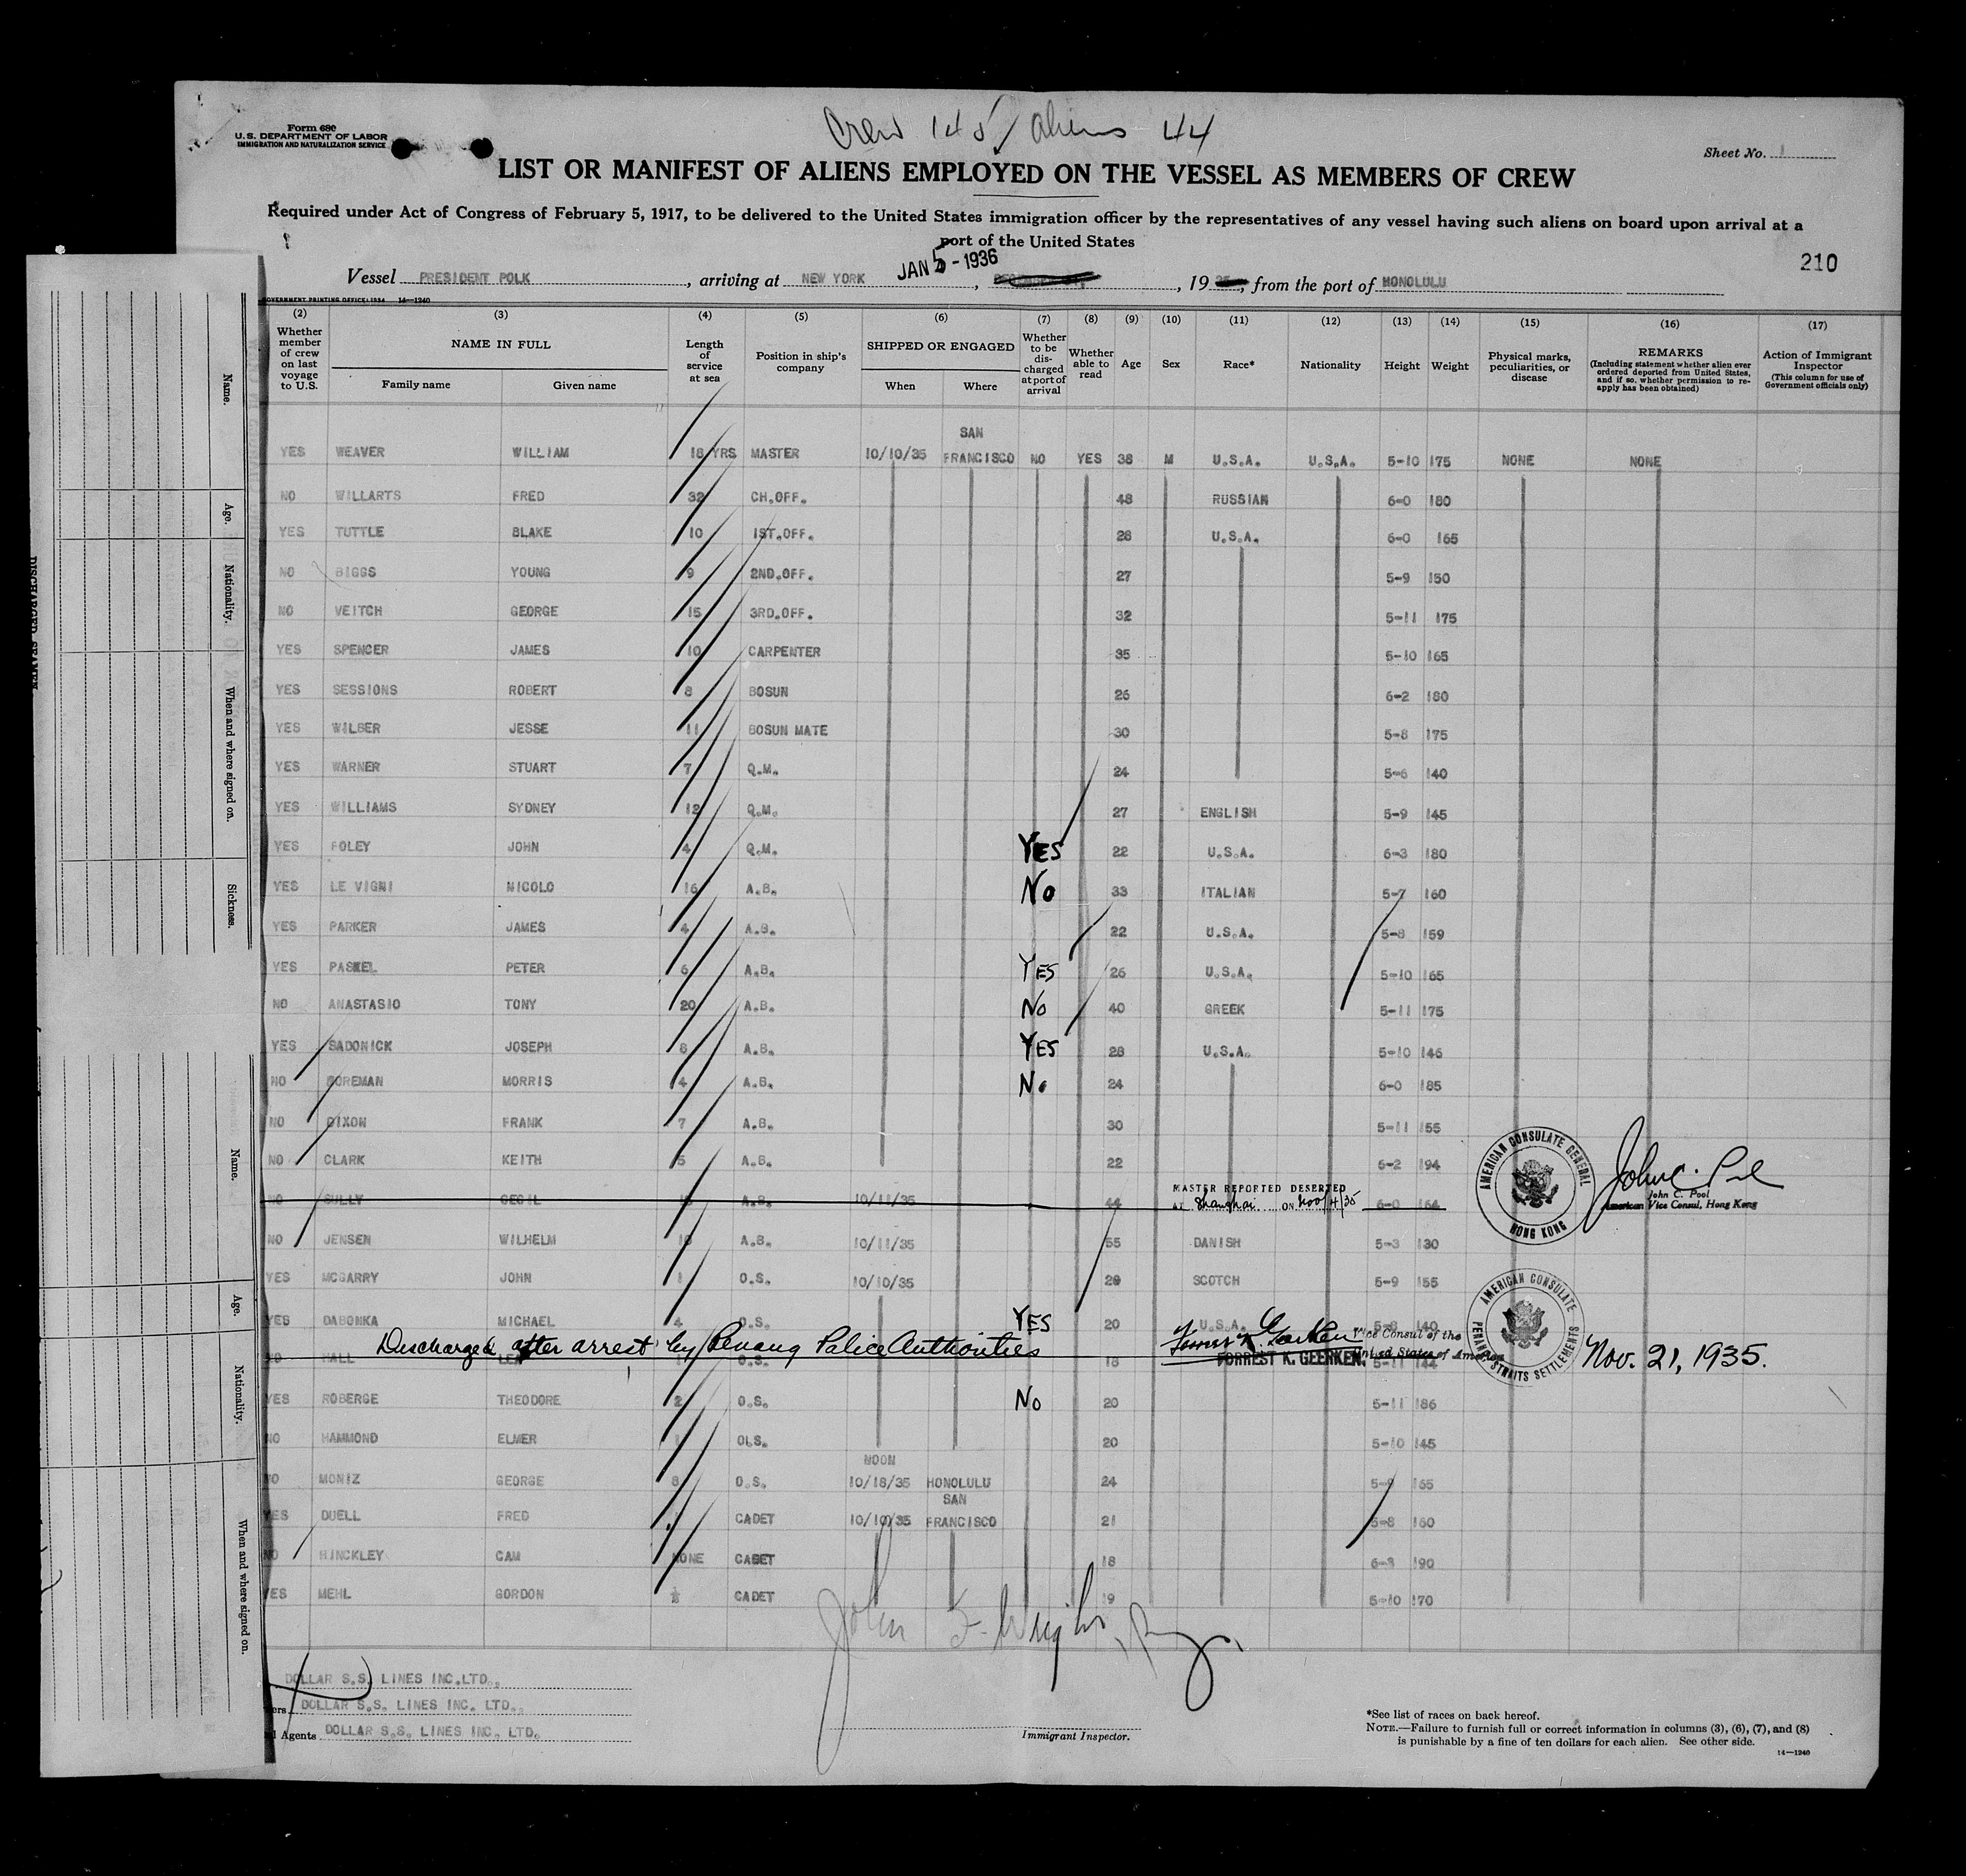 Crew 145 / aliens 44
Form 680
U.S. DEPARTMENT OF LABOR
IMMIGRATION AND NATURALIZATION SERVICE
Sheet No. 1
LIST OR MANIFEST OF ALIENS EMPLOYED ON THE VESSEL AS MEMBERS OF CREW
Required under Act of Congress of February 5, 1917, to be delivered to the United States immigration officer by the representatives of any vessel having such aliens on board upon arrival at a
port of the United States
210
Vessel PRESIDENT POLK, arriving at NEW YORK JAN 5 - 1936, 19, from the port of HONOLULU
GOVERNMENT PRINTING OFFICE: 1934 14—1240
(2) (3) (4) (5) (6) (7) (8) (9) (10) (11) (12) (13) (14) (15) (16) (17)
Whether member of crew on last voyage to U.S.
NAME IN FULL
Family name Given name
Length of service at sea
Position in ship's company
SHIPPED OR ENGAGED
When Where
Whether to be discharged at port of arrival
Whether able to read
Age Sex Race* Nationality Height Weight
Physical marks, peculiarities, or disease
REMARKS
(Including statement whether alien ever ordered deported from United States, and if so, whether permission to reapply has been obtained)
Action of Immigrant Inspector
(This column for use of Government officials only)
SAN
YES WEAVER WILLIAM 18 YRS MASTER 10/10/35 FRANCISCO NO YES 38 M U.S.A. U.S.A. 5-10 175 NONE NONE
NO WILLARTS FRED 32 CH.OFF. 48 RUSSIAN 6-0 180
YES TUTTLE BLAKE 10 1ST.OFF. 28 U.S.A. 6-0 165
NO BIGGS YOUNG 9 2ND.OFF. 27 5-9 150
NO VEITCH GEORGE 15 3RD.OFF. 32 5-11 175
YES SPENCER JAMES 10 CARPENTER 35 5-10 165
YES SESSIONS ROBERT 8 BOSUN 26 6-2 180
YES WILBER JESSE 11 BOSUN MATE 30 5-8 175
YES WARNER STUART 7 Q.M. 24 5-6 140
YES WILLIAMS SYDNEY 12 Q.M. 27 ENGLISH 5-9 145
YES FOLEY JOHN 4 Q.M. YES 22 U.S.A. 6-3 180
YES LE VIGNI NICOLO 16 A.B. NO 33 ITALIAN 5-7 160
YES PARKER JAMES 4 A.B. 22 U.S.A. 5-8 159
YES PASKEL PETER 6 A.B. YES 26 U.S.A. 5-10 165
NO ANASTASIO TONY 20 A.B. NO 40 GREEK 5-11 175
YES SADONICK JOSEPH 8 A.B. YES 28 U.S.A. 5-10 146
NO BOREMAN MORRIS 4 A.B. NO 24 6-0 185
NO DIXON FRANK 7 A.B. 30 5-11 155
NO CLARK KEITH 5 A.B. 22 6-2 194
NO SULLY CECIL A.B. 10/11/35 44 6-0 164
MASTER REPORTED DESERTED
AT Shanghai ON Nov/4/35
AMERICAN CONSULATE GENERAL
HONG KONG
John C. Pool
John C. Pool
American Vice Consul, Hong Kong
NO JENSEN WILHELM A.B. 10/11/35 55 DANISH 5-3 130
YES MCGARRY JOHN 1 O.S. 10/10/35 29 SCOTCH 5-9 155
YES DABONKA MICHAEL 4 O.S. YES 20 U.S.A. 5-8 140
Discharged after arrest by Penang Police Authorities
NO HALL O.S. 18 5-11 144
Forrest K. Geerken
FORREST K. GEERKEN,
Vice Consul of the
United States of America
AMERICAN CONSULATE
PENANG, STRAITS SETTLEMENTS
Nov. 21, 1935.
YES ROBERGE THEODORE 2 O.S. NO 20 5-11 186
NO HAMMOND ELMER 1 OLS. 20 5-10 145
NOON
NO MONIZ GEORGE 8 O.S. 10/18/35 HONOLULU 24 5-9 165
SAN
YES DUELL FRED 1 CADET 10/10/35 FRANCISCO 21 5-8 160
NO HINCKLEY CAM NONE CADET 18 6-3 190
YES MEHL GORDON CADET 19 5-10 170
John F. Wright
DOLLAR S.S. LINES INC.LTD.,
ers DOLLAR S.S. LINES INC. LTD.,
l Agents DOLLAR S.S. LINES INC. LTD.
Immigrant Inspector.
*See list of races on back hereof.
NOTE.—Failure to furnish full or correct information in columns (3), (6), (7), and (8)
is punishable by a fine of ten dollars for each alien. See other side.
14—1240
DISCHARGED SEAMEN
Name.
Age.
Nationality.
When and where signed on.
Sickness.
Name.
Age.
Nationality.
When and where signed on.